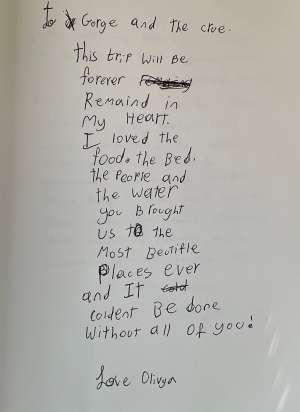 to Gorge and the crue.
this trip will Be
forever
Remaind in
My Heart.
I loved the
food. the Bed.
the People and
the water
you Brought
us to the
Most Beutifle
Places ever
and It
coldent Be done
Without all of you!
Love Olivya